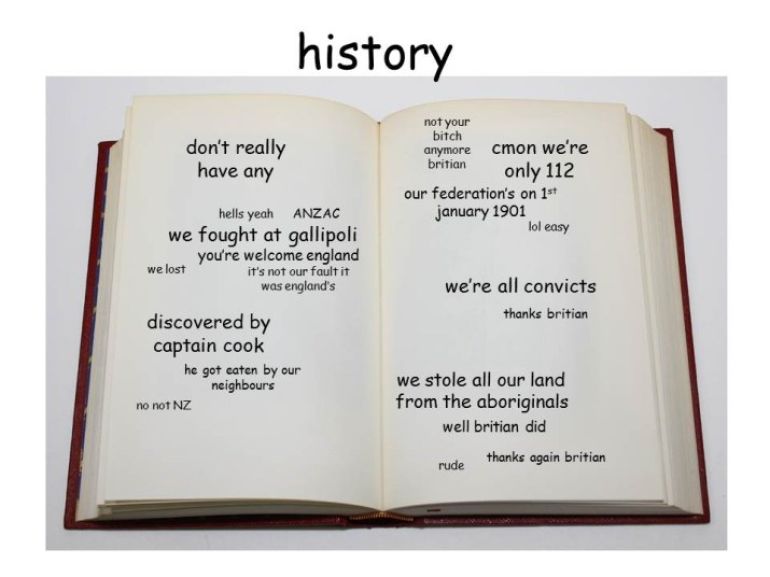 history
don't really
have any
hells yeah
ANZAC
we fought at gallipoli
you're welcome england
we lost
it's not our fault it
was england's
discovered by
captain cook
he got eaten by our
neighbours
no not NZ
not your
bitch
anymore
britian
cmon we're
only 112
our federation's on 1st
january 1901
lol easy
we're all convicts
thanks britian
we stole all our land
from the aboriginals
well britian did
thanks again britian
rude